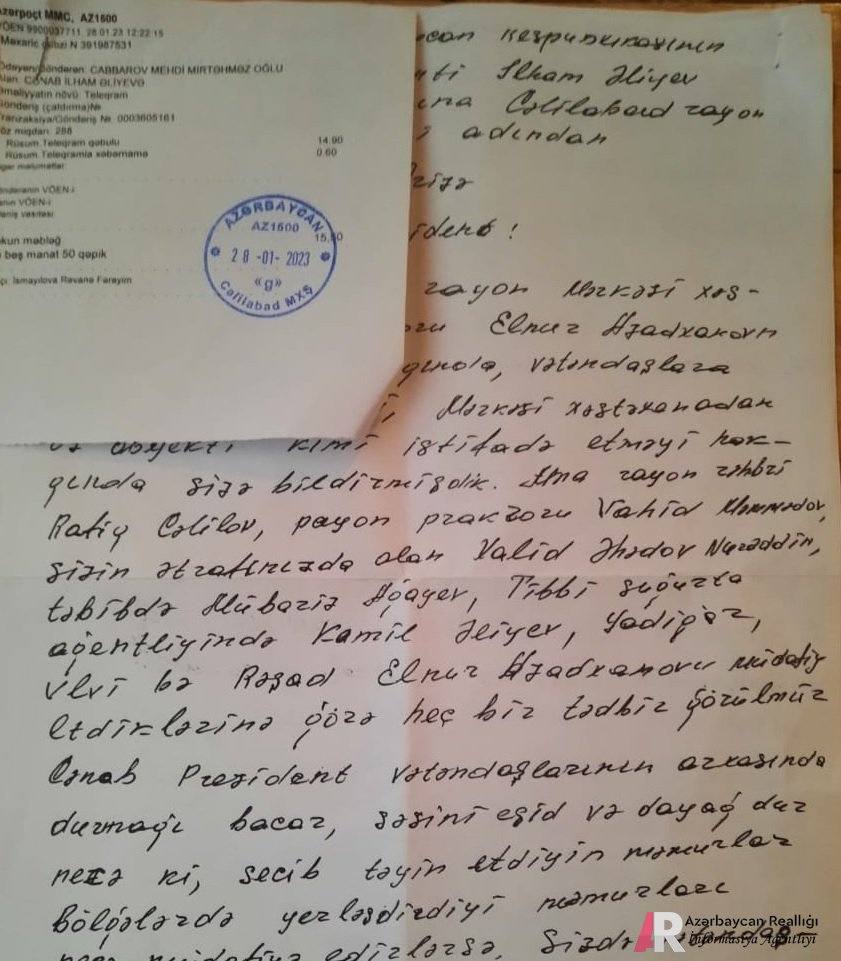 Azərpoçt MMC, AZ1600
VÖEN 9900037711, 28.01.23 12:22:15
Məxaric qəbzi N 391987531
Ödəyən/göndərən: CABBAROV MEHDİ MİRTƏHMƏZ OĞLU
Alan: CƏNAB İLHAM ƏLİYEVƏ
Əməliyyatın növü: Teleqram
Göndəriş (çatdırma)№
Tranzaksiya/Göndəriş №: 0003605161
Söz miqdarı: 288
Rüsum.Teleqram qəbulu 14.90
Rüsum.Teleqramla xəbərnamə 0.60
igər məlumatlar:
öndərənin VÖEN-i
anın VÖEN-i
dəniş vasitəsi
kun məbləğ 15.50
beş manat 50 qəpik
çı: İsmayılova Rəvanə Fərayim
AZƏRBAYCAN
AZ1600
28-01-2023
«g»
Cəlilabad MXŞ
can Respublikasının
ti İlham Əliyev
ına Cəlilabad rayon
i adından
rizə
ident!
rayon Mərkəzi xəs-
oru Elnur Azadxanovın
qında, vətəndaşlara
i Mərkəzi xəstəxanadan
və obyekti kimi istifadə etməyi haq-
qında sizə bildirmişdik. Ama rayon rəhbri
Rafiq Cəlilov, payon prakroru Vahid Məmmədov,
sizin ətrafınızda olan Valid Əhədov Nurəddin,
təbibdə Mübariz Ağayev, Tibbi sığorta
agentliyində Kamil Əliyev, Yadigar,
Ulvi bə Rəşad Elnur Azadxanovu müdafiy
etdiklərinə görə heç bir tədbir görülmür
Cənab Prezident vətəndaşlarının arxasında
durmağı bacar, səsini eşid və dayağ dur
necə ki, secib təyin etdiyin məmurlar
bölgələrdə yerləşdirdiyi məmurları
edirlərsə, Sizdə vətəndaş-
AR Azərbaycan Reallığı
İnformasiya Agentliyi